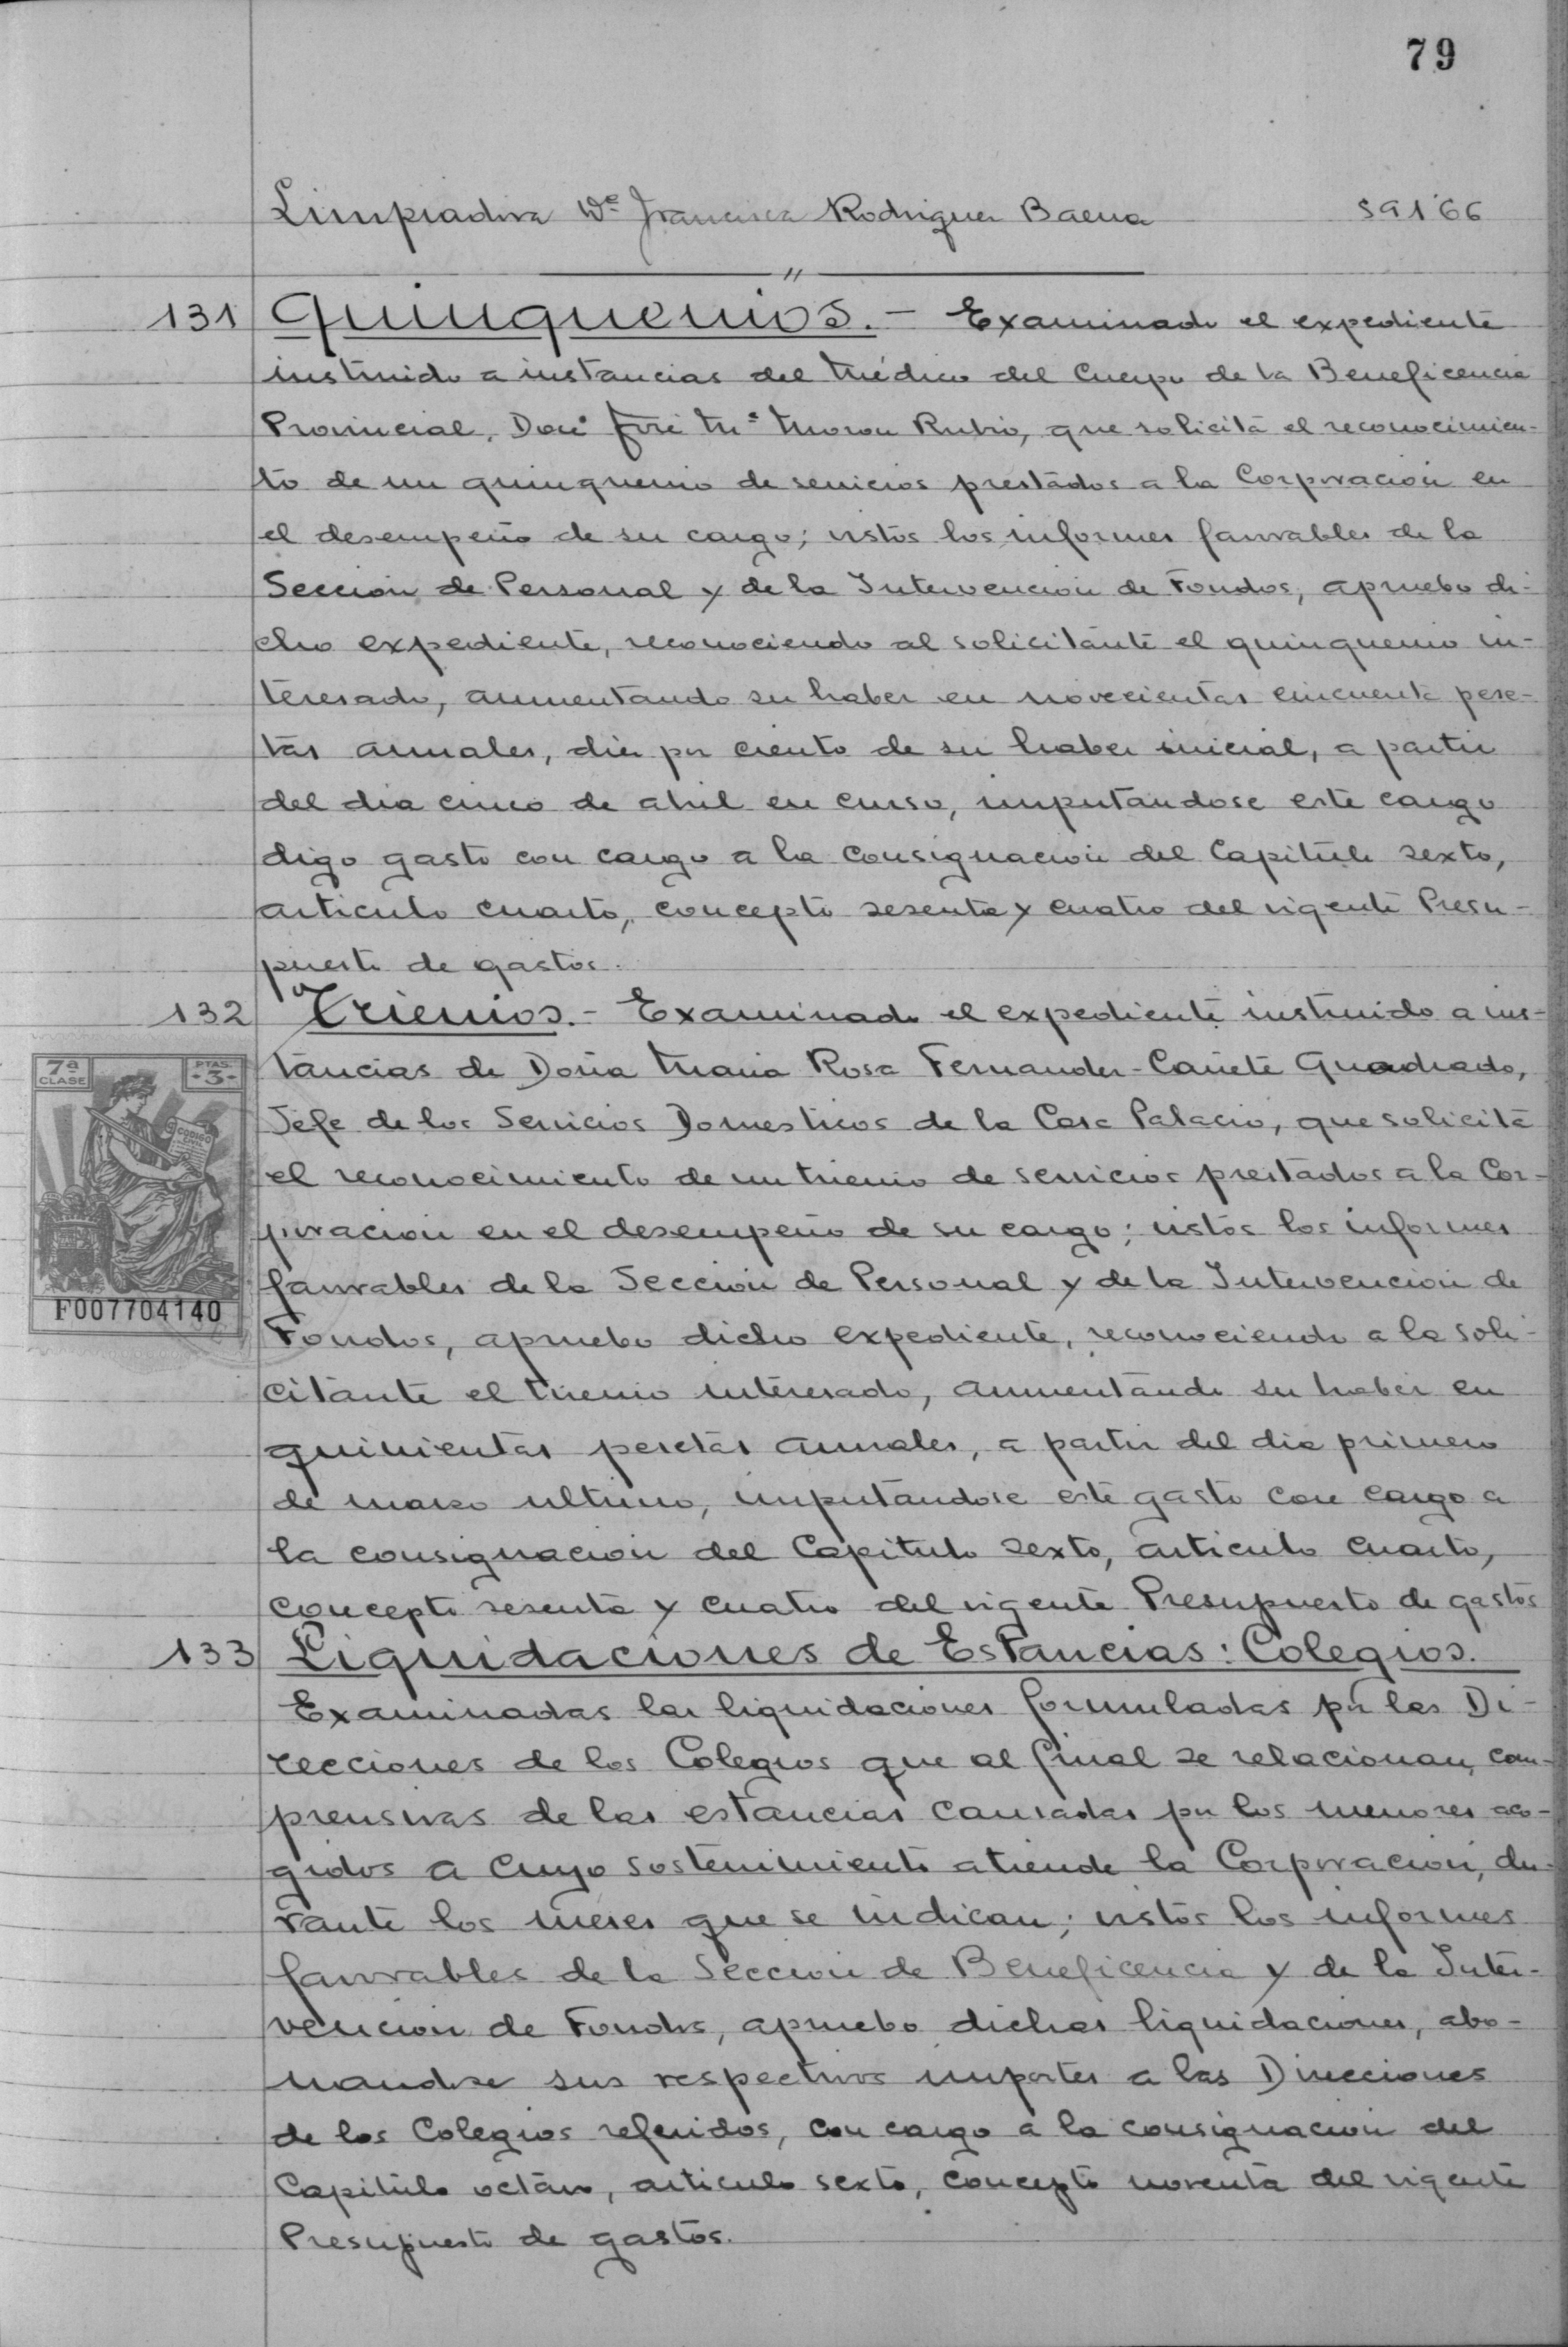 79
Limpiadora Dª Francisca Rodriguez Baena 591'66
"
131 Quinquenios.- Examinado el expediente
instruido a instancias del Médico del Cuerpo de la Beneficencia
Provincial, Don José Mª Moron Rubio, que solicita el reconocimien-
to de un quinquenio de servicios prestados a la Corporación en
el desempeño de su cargo; vistos los informes favorables de la
Sección de Personal y de la Intervención de Fondos, apruebo di-
cho expediente, reconociendo al solicitante el quinquenio in-
teresado, aumentando su haber en novecientas cincuenta pese-
tas anuales, diez por ciento de su haber inicial, a partir
del dia cinco de abril en curso, imputandose este cargo
digo gasto con cargo a la consignación del Capitulo sexto,
articulo cuarto, concepto sesenta y cuatro del vigente Presu-
puesto de gastos.
132 Trienios.- Examinado el expediente instruido a ins-
tancias de Doña Maria Rosa Fernandez-Cañete Quadrado,
Jefe de los Servicios Domesticos de la Casa Palacio, que solicita
el reconocimiento de un trienio de servicios prestados a la Cor-
poración en el desempeño de su cargo; vistos los informes
favorables de la Sección de Personal y de la Intervención de
Fondos, apruebo dicho expediente, reconociendo a la soli-
citante el trienio interesado, aumentando su haber en
quinientas pesetas anuales, a partir del dia primero
de marzo ultimo, imputandose este gasto con cargo a
la consignación del Capitulo sexto, articulo cuarto,
concepto sesenta y cuatro del vigente Presupuesto de gastos
7ª CLASE
PTAS. -3-
CODIGO CIVIL
F007704140
133 Liquidaciones de Estancias: Colegios.
Examinadas las liquidaciones formuladas por las Di-
recciones de los Colegios que al final se relacionan, com-
prensivas de las estancias causadas por los menores aco-
gidos a cuyo sostenimiento atiende la Corporación, du-
rante los meses que se indican; vistos los informes
favorables de la Sección de Beneficencia y de la Inter-
vención de Fondos, apruebo dichas liquidaciones, abo-
nandose sus respectivos importes a las Direcciones
de los Colegios referidos, con cargo a la consignación del
Capitulo octavo, articulo sexto, concepto noventa del vigente
Presupuesto de gastos.